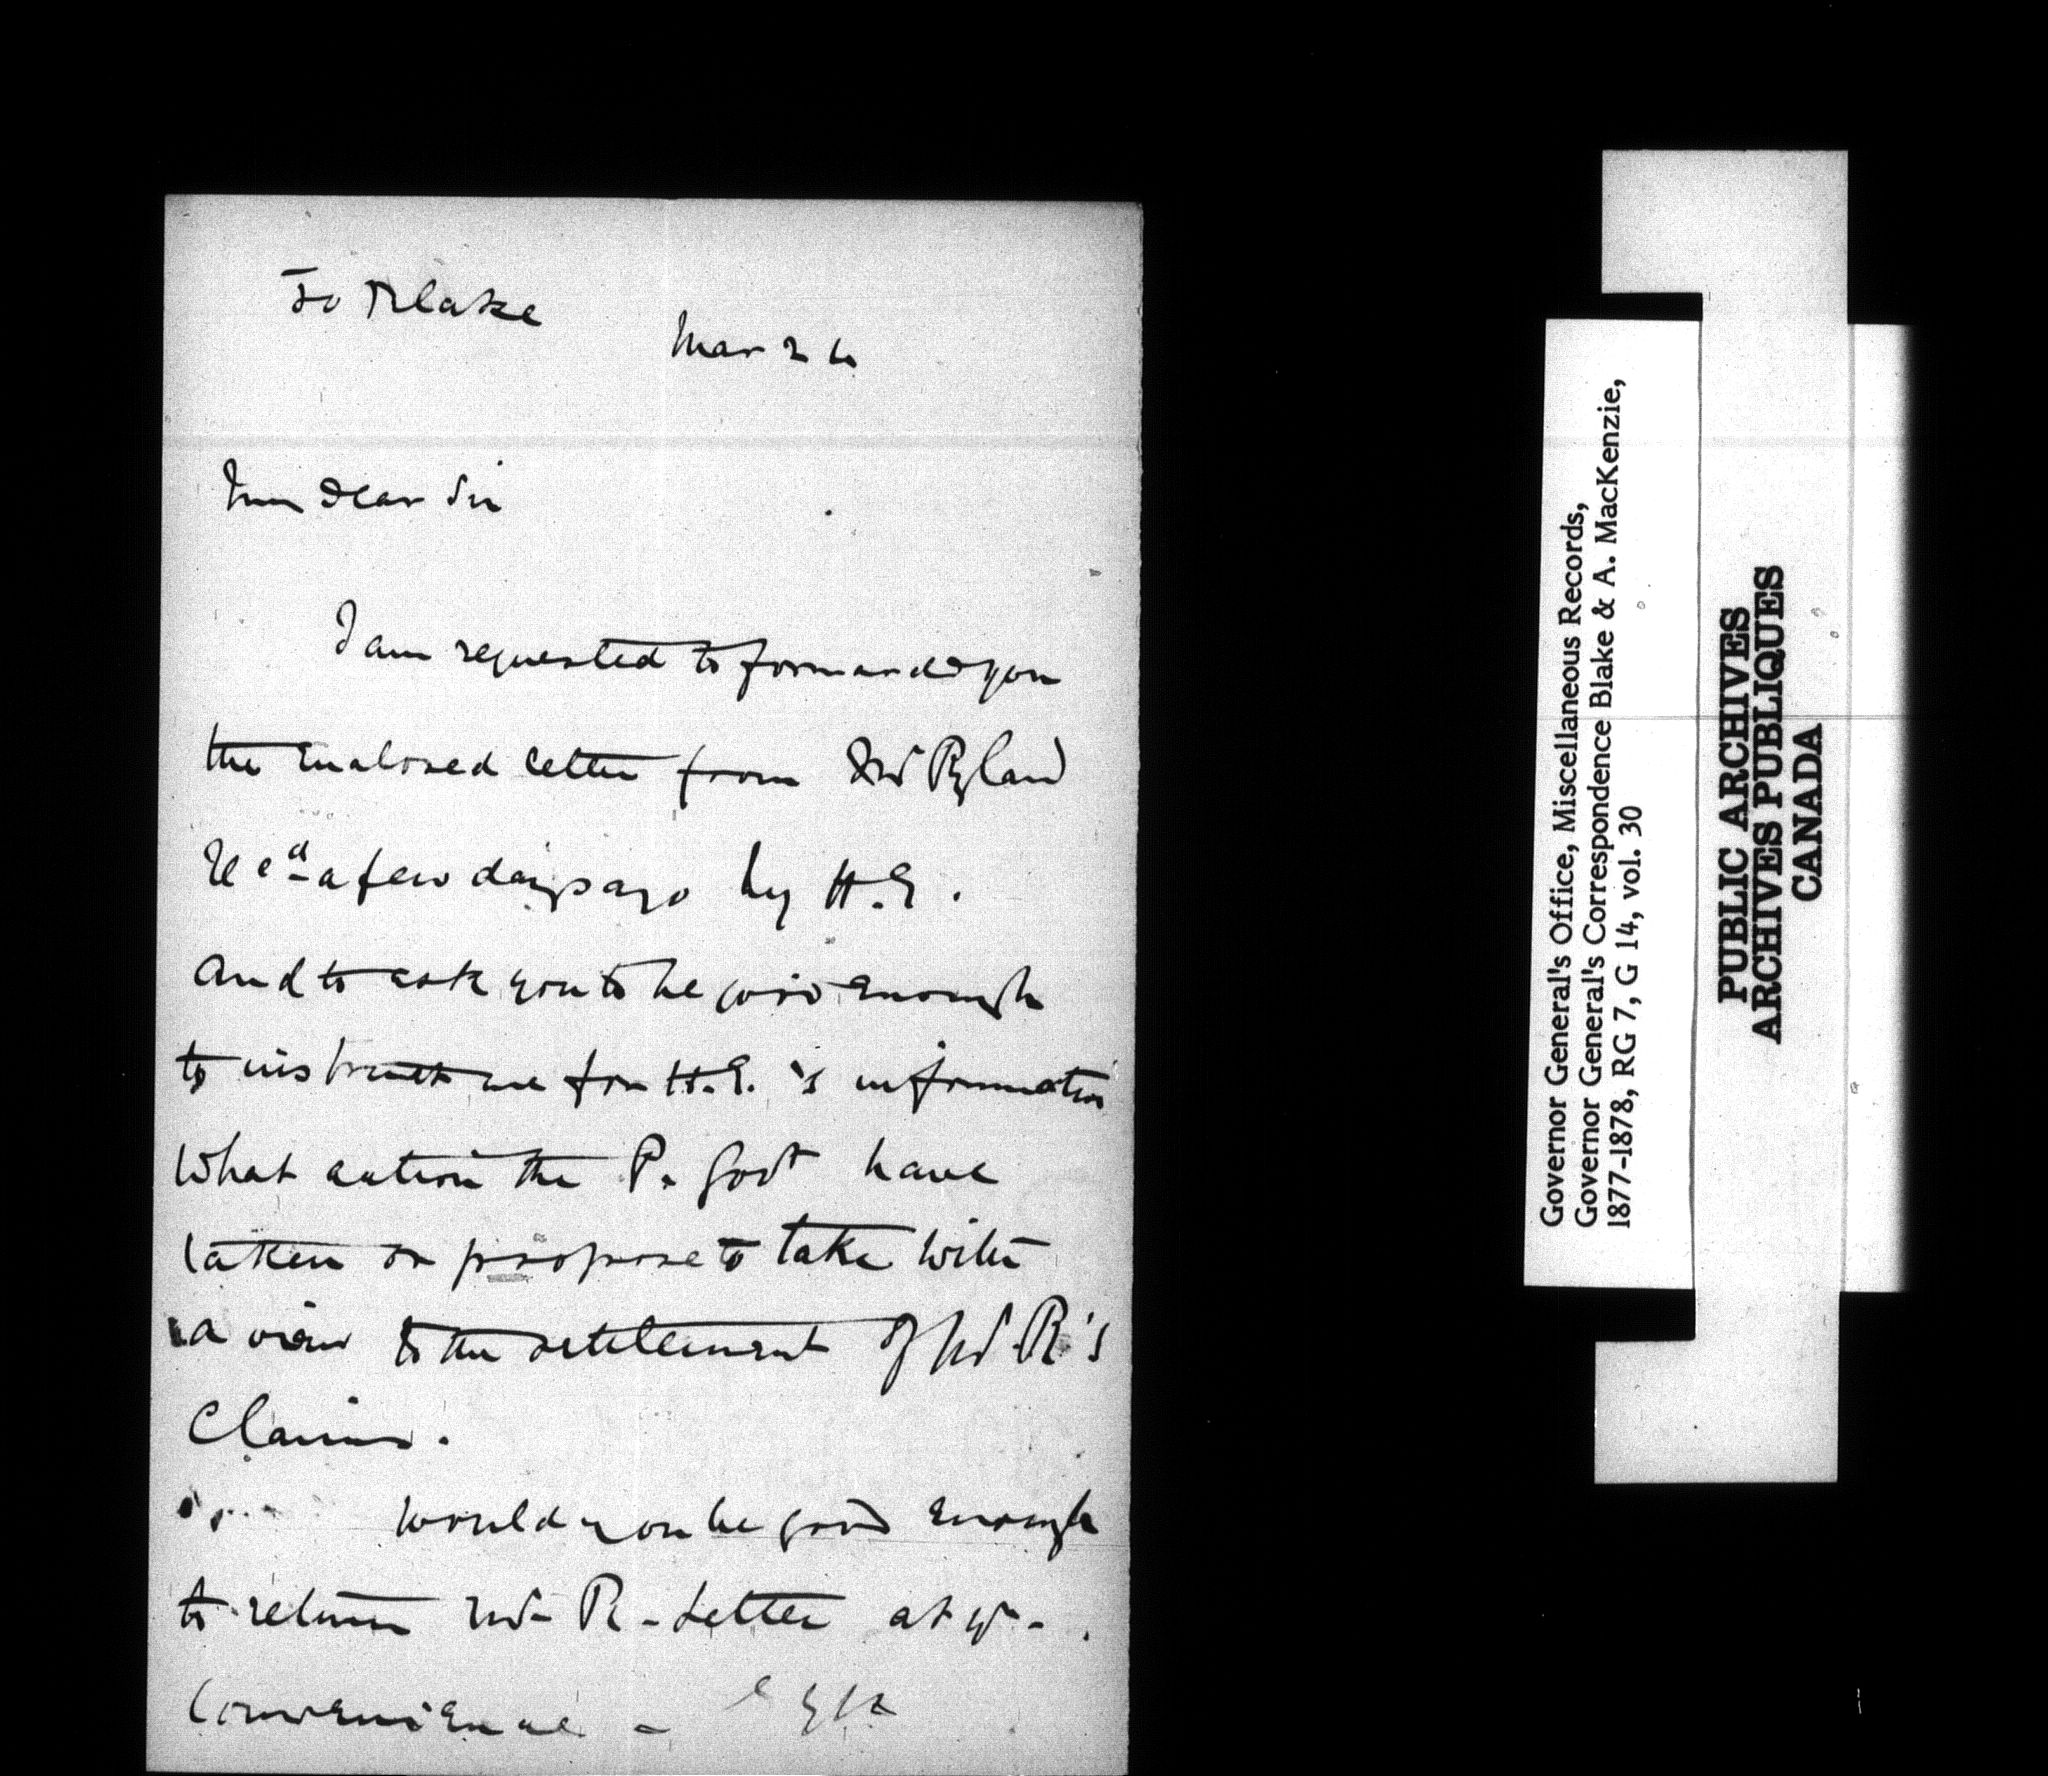 To Blake
Mar 26
My dear Sir
I am requested to forward you
the enclosed letter from Mr Ryland
Recd a few days ago by H.E.
and to ask you to be good enough
to instruct me for H.E.'s information
what action the P. Govt have
taken or propose to take with
a view to the settlement of Mr R's
Claims.
Would you be good enough
to return Mr R - Letter at yr -
Convenience -
Governor General's Office, Miscellaneous Records,
Governor General's Correspondence Blake & A. MacKenzie,
1877-1878, RG 7, G 14, vol. 30
PUBLIC ARCHIVES
ARCHIVES PUBLIQUES
CANADA